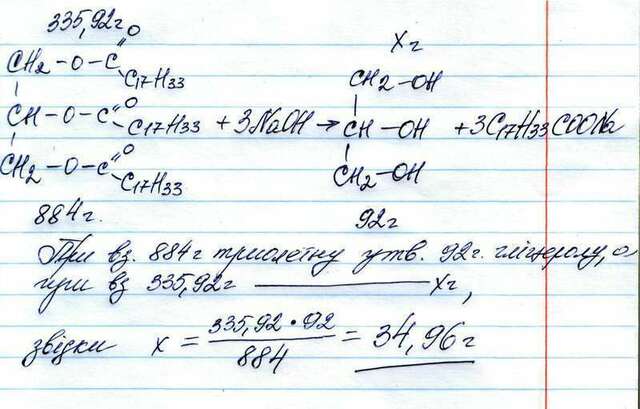 335,92г
Xг
CH2-O-C=O
C17H33
CH2-OH
CH-O-C=O
C17H33 + 3NaOH → CH-OH + 3C17H33COONa
CH2-O-C=O
C17H33
CH2-OH
884г.
92г
При вз. 884г триолеїну утв. 92г. гліцеролу, а
при вз 335,92г — Xг,
звідки x = 335,92 · 92 / 884 = 34,96г